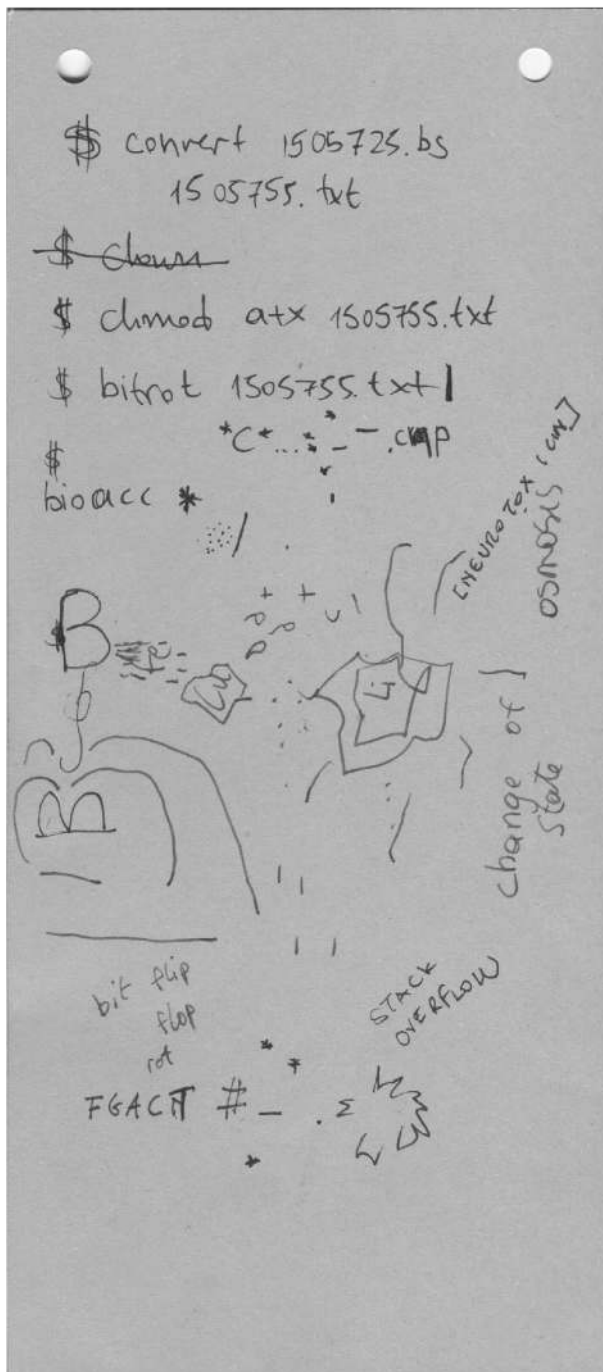 $ convert 1505725.bs
1505755.txt
$ chown
$ chmod a+x 1505755.txt
$ bitrot 1505755.txt
*C*...*_-.cmp
$
bioacc *
[NEUROTOX
OSMOSIS
B
Cu
Li
change of
state
B
bit flip
flop
rot
STACK
OVERFLOW
FGACT #_